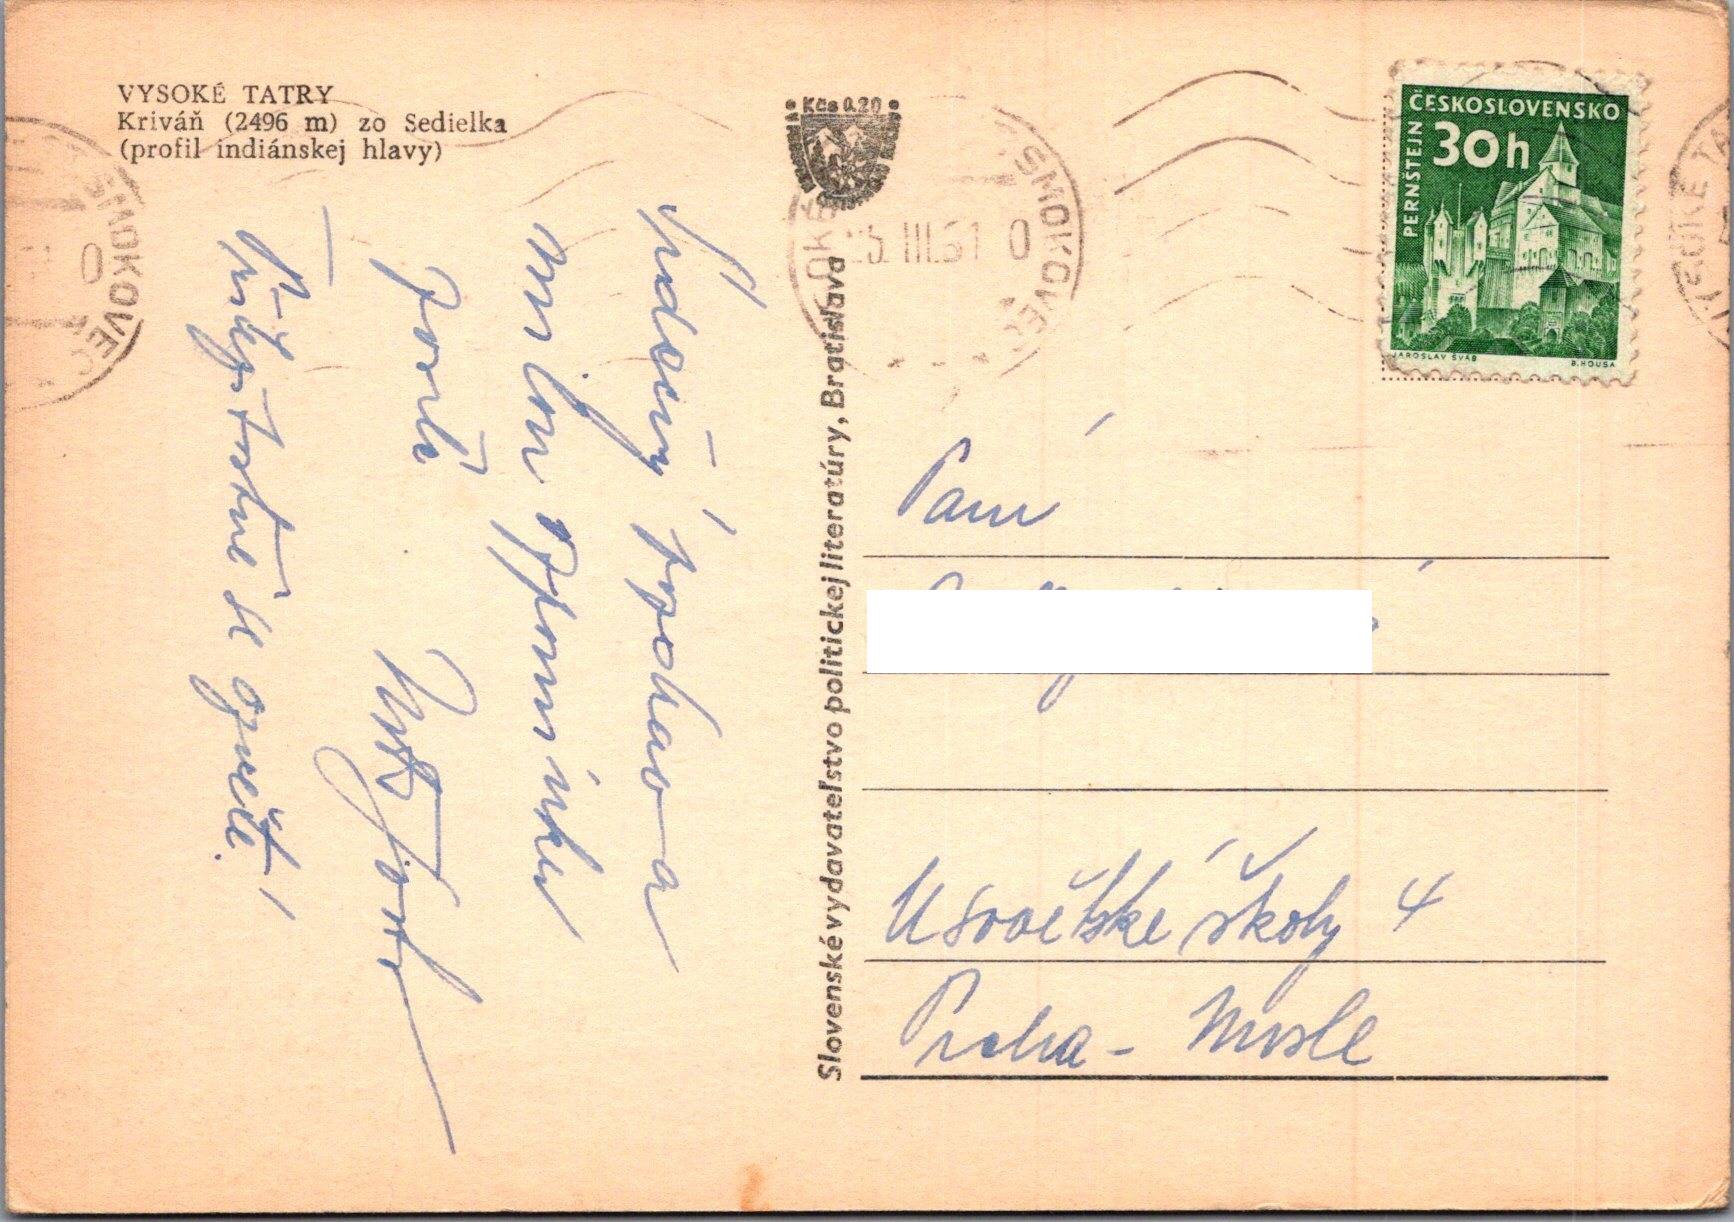 VYSOKÉ TATRY
Kriváň (2496 m) zo Sedielka
(profil indiánskej hlavy)
Kčs 0.20
SMOKOVEC
III.61 0
ČESKOSLOVENSKO
30h
PERNŠTEJN
JAROSLAV ŠVÁB
B. HOUSA
SMOKOVEC
0
Slovenské vydavateľstvo politickej literatúry, Bratislava
Srdečný pozdrav a
milou vzpomínku
posílá
Přijďte se
Paní
U Sovětské školy 4
Praha - Nusle